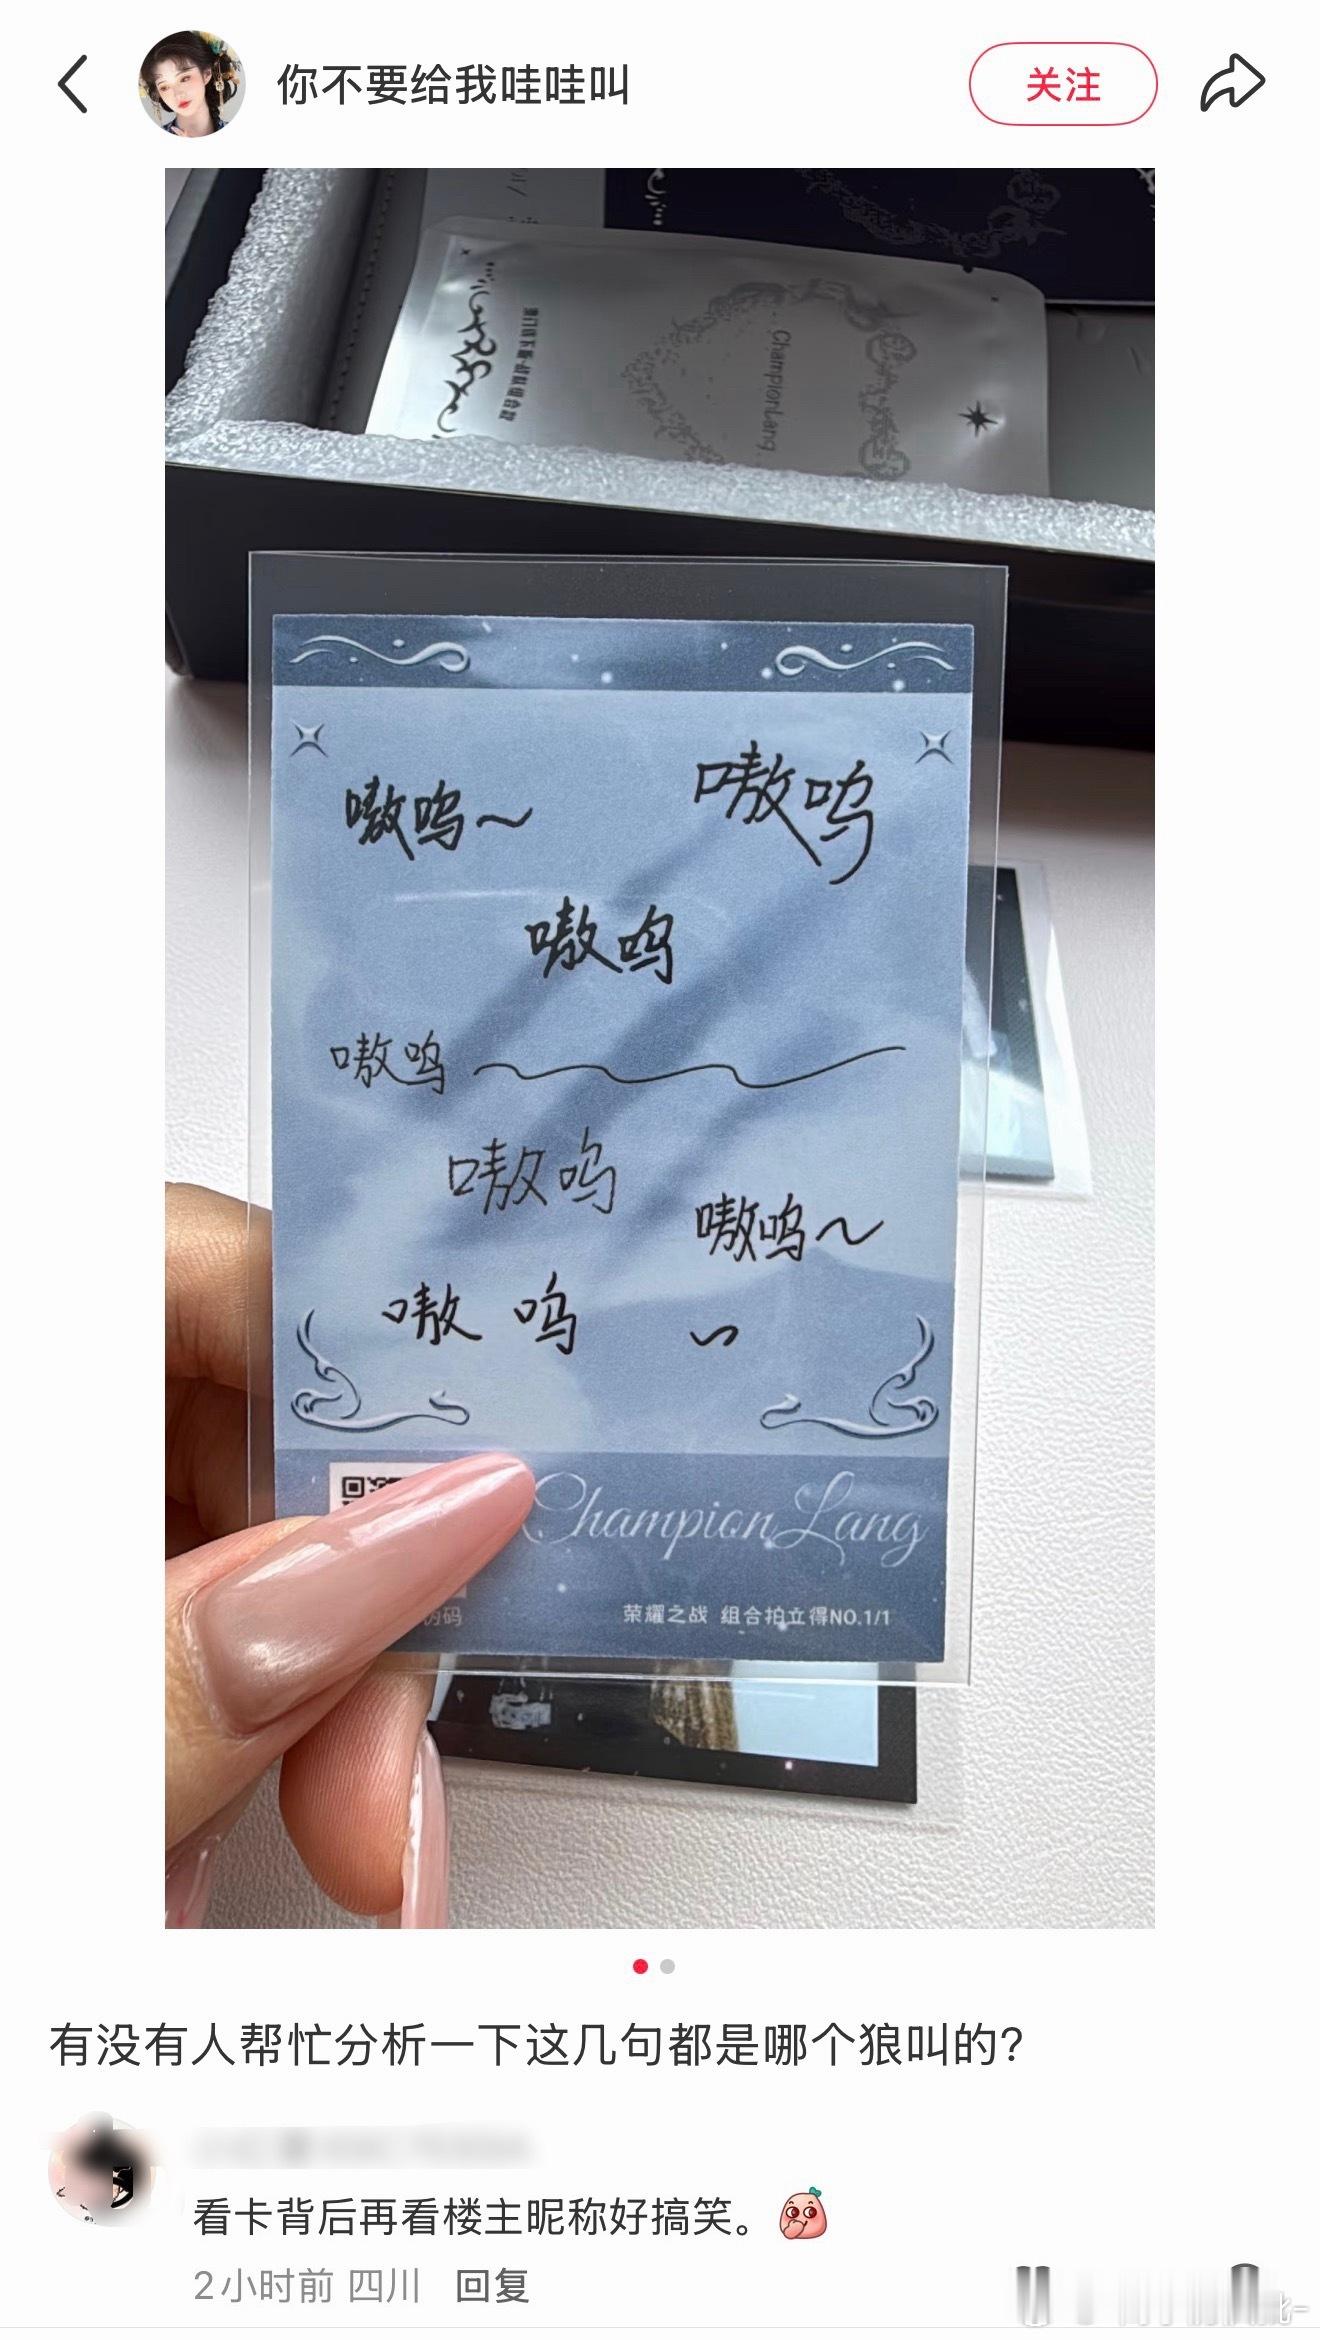 你不要给我哇哇叫
关注
ChampionLang
嗷呜～
嗷呜
嗷呜
嗷呜
嗷呜
嗷呜～
嗷 呜 ~
ChampionLang
伪码
荣耀之战 组合拍立得NO.1/1
有没有人帮忙分析一下这几句都是哪个狼叫的?
看卡背后再看楼主昵称好搞笑。
2小时前 四川 回复